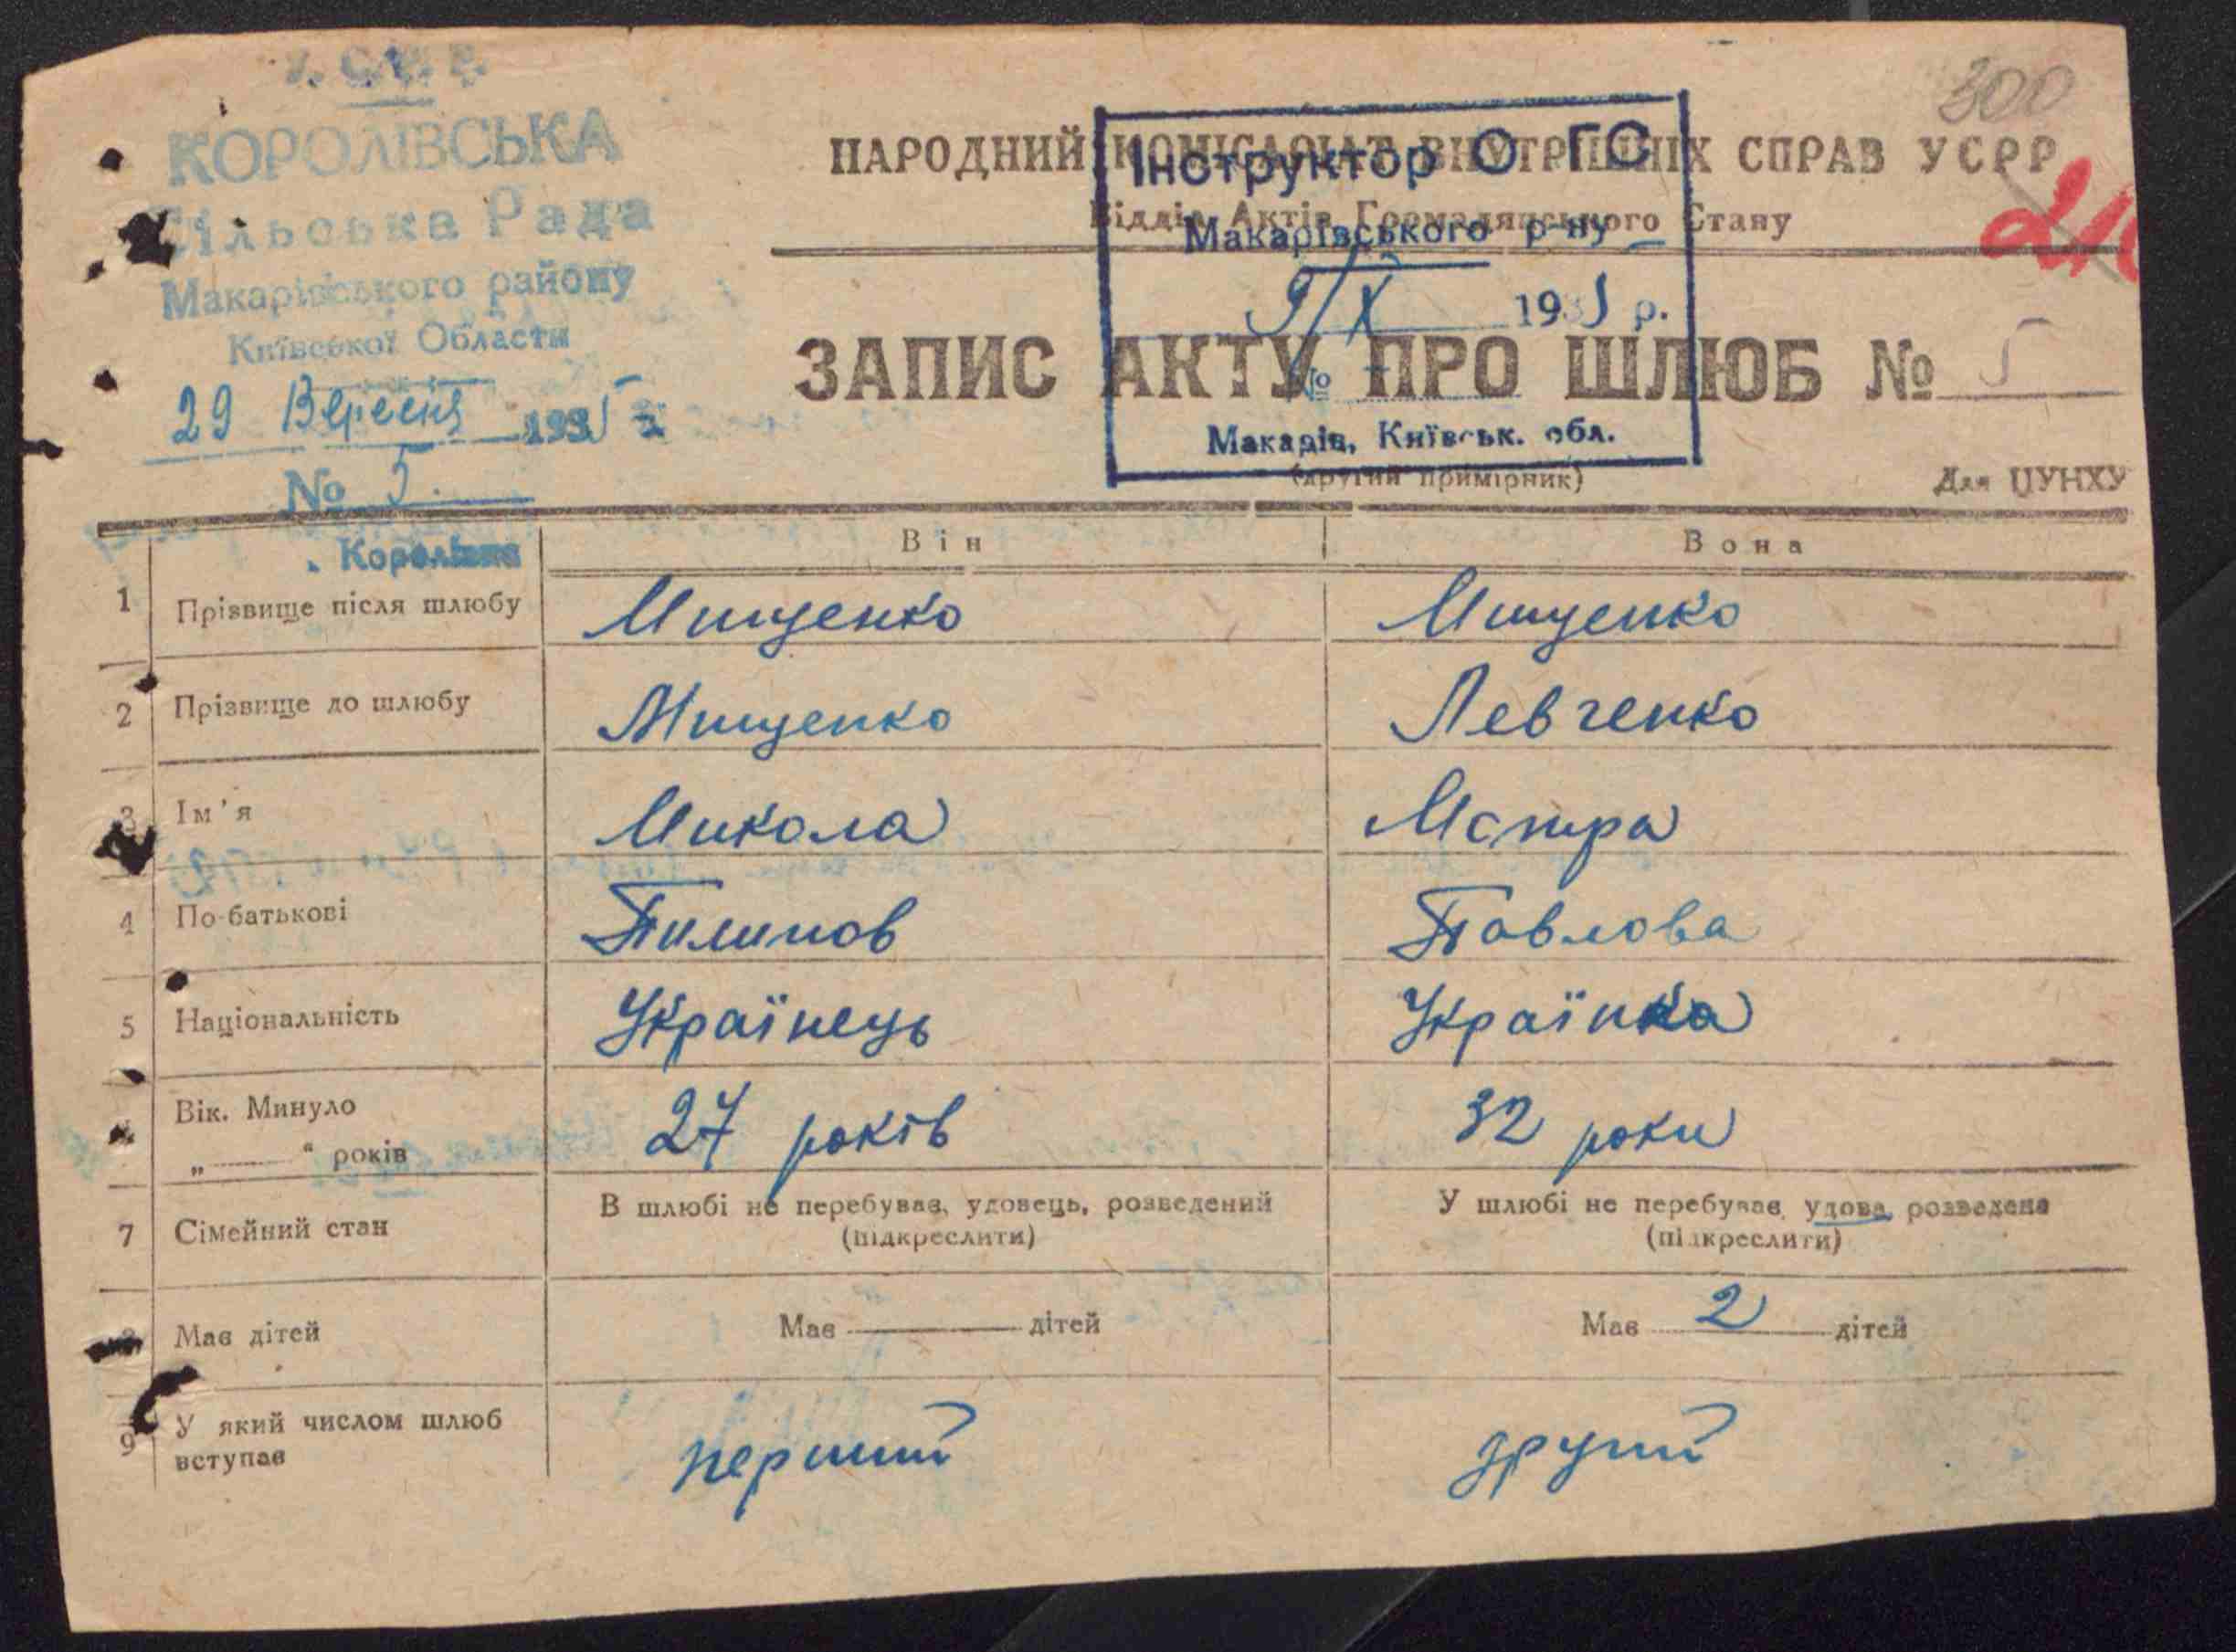 У.С.Р.Р.
КОРОЛІВСЬКА
Сільська Рада
Макарівського району
Київської Области
29 Вересня 1935 р.
№ 5.
с. Королівка
300
НАРОДНИЙ КОМІСАРІАТ ВНУТРІШНІХ СПРАВ УСРР
Відділ Актів Громадянського Стану
Інструктор О ГС
Макарівського р-ну
9/X 1935 р.
№
Макарів, Київськ. обл.
ЗАПИС АКТУ ПРО ШЛЮБ № 5
(другий примірник)
Для ЦУНХУ
Він Вона
1 Прізвище після шлюбу Мищенко Мищенко
2 Прізвище до шлюбу Мищенко Левченко
3 Ім'я Микола Мотра
4 По-батькові Пилипов Павлова
5 Національність Українець Українка
Вік. Минуло
„ “ років 27 років 32 роки
7 Сімейний стан В шлюбі не перебував, удовець, розведений У шлюбі не перебував, удова, розведена
(підкреслити) (підкреслити)
Має дітей Має дітей Має 2 дітей
9 У який числом шлюб
вступає перший другий